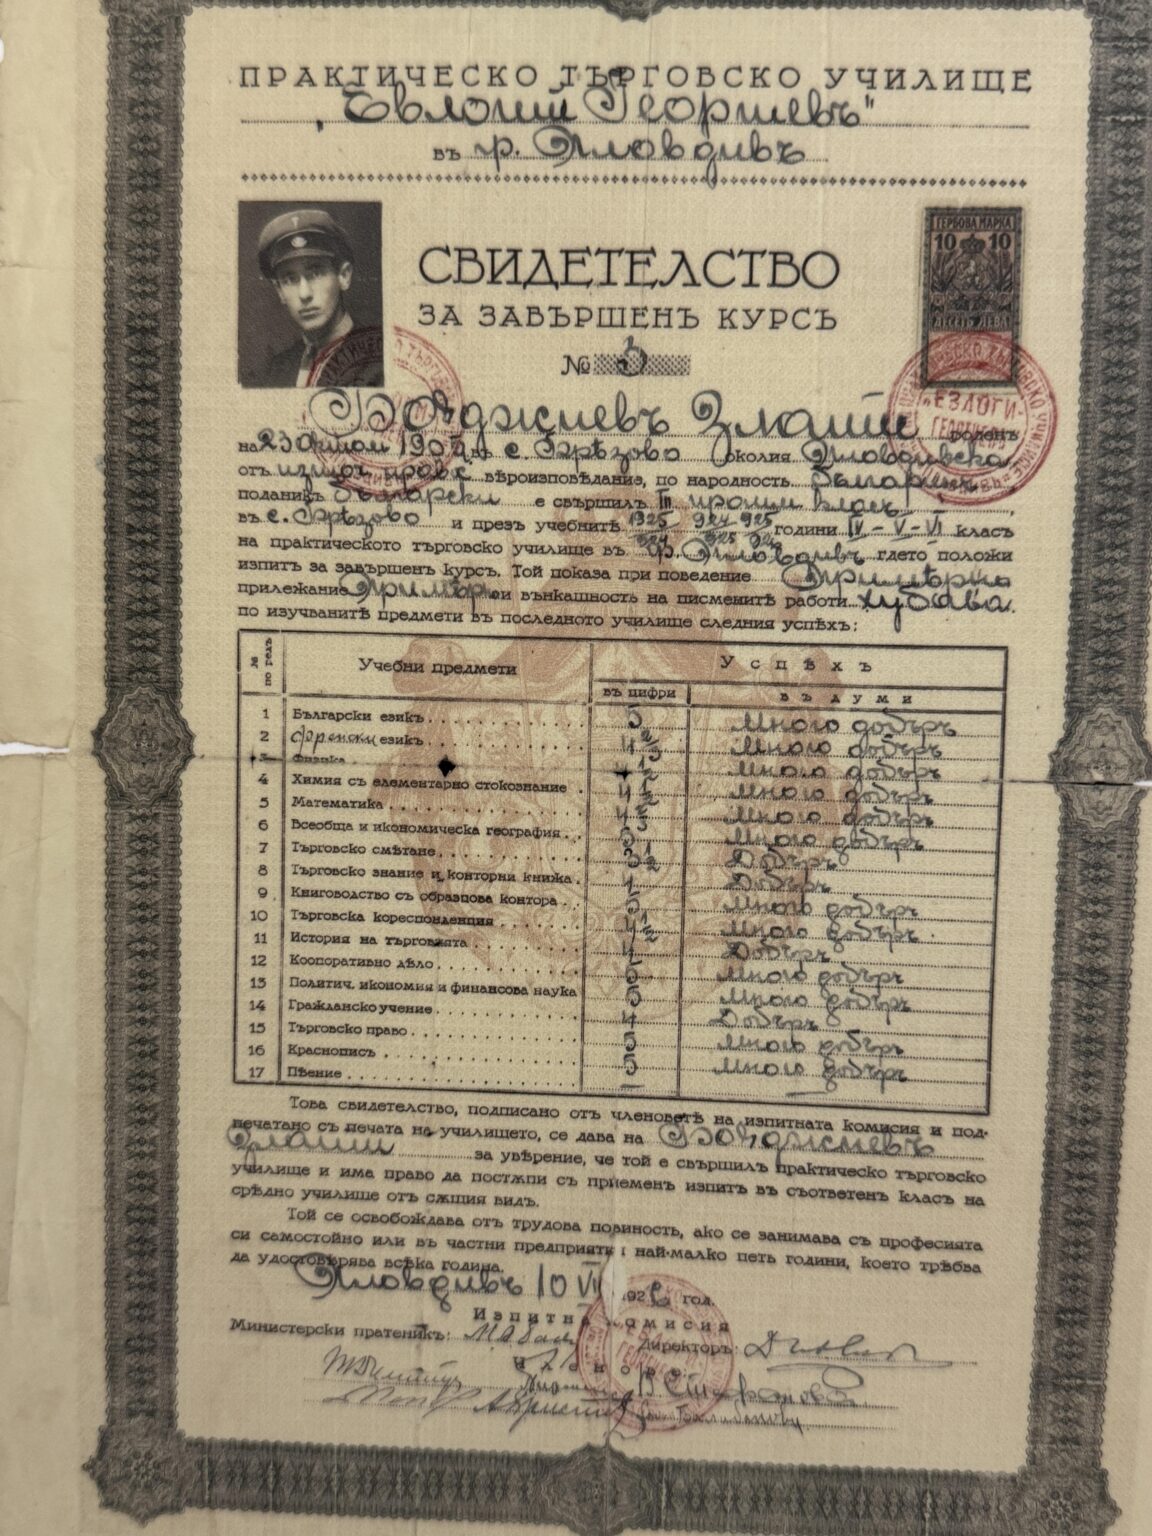 ПРАКТИЧЕСКО ТЪРГОВСКО УЧИЛИЩЕ
„Евлогий Георгиевъ"
въ гр. Пловдивъ
ГЕРБОВА МАРКА
10 10
ДЕСЕТЬ ЛЕВА
СВИДЕТЕЛСТВО
ЗА ЗАВЪРШЕНЪ КУРСЪ
№ 3
Бояджиевъ Златю роденъ
на 23 априлй 1907 въ с. Брѣзово околия Пловдивска
отъ източ. прав. вѣроизповѣдание, по народность Българинъ
поданикъ Български е свършилъ III проги. класъ,
въ с. Брѣзово и презъ учебнитѣ години IV – V – VI класъ
на практическото търговско училище въ гр. Пловдивъ гдето положи
изпитъ за завършенъ курсъ. Той показа при поведение Примѣрно
прилежание Примѣрно и вънкашность на писменитѣ работи хубава.
по изучванитѣ предмети въ последното училище следния успѣхъ:
№ по редъ Учебни предмети Успѣхъ
въ цифри въ думи
1 Български езикъ 5 Много добъръ
2 Френски езикъ 4 2/3 Много добъръ
3 Физика 4 1/2 Много добъръ
4 Химия съ елементарно стокознание 4 1/2 Много добъръ
5 Математика Много добъръ
6 Всеобща и икономическа география 5 Много добъръ
7 Търговско смѣтане 3 1/2 Добъръ
8 Търговско знание и конторни книжа 4 Добъръ
9 Книговодство съ образцова контора 5 Много добъръ
10 Търговска кореспонденция 4 1/2 Много добъръ
11 История на търговията 4 Добъръ
12 Коопоративно дѣло 5 Много добъръ
13 Политич. икономия и финансова наука 5 Много добъръ
14 Гражданско учение 4 Добъръ
15 Търговско право 5 Много добъръ
16 Краснописъ 5 Много добъръ
17 Пѣение —
Това свидетелство, подписано отъ членоветѣ на изпитната комисия и под-
печатано съ печата на училището, се дава на Бояджиевъ
Златю за увѣрение, че той е свършилъ практическо търговско
училище и има право да постѫпи съ приеменъ изпитъ въ съответенъ класъ на
срѣдно училище отъ сѫщия видъ.
Той се освобождава отъ трудова повиность, ако се занимава съ професията
си самостойно или въ частни предприятия най-малко петь години, което трѣбва
да удостовѣрява всѣка година.
Пловдивъ 10 VII 1926 год.
Изпитна комисия
Министерски пратеникъ: Директоръ:
Членове: